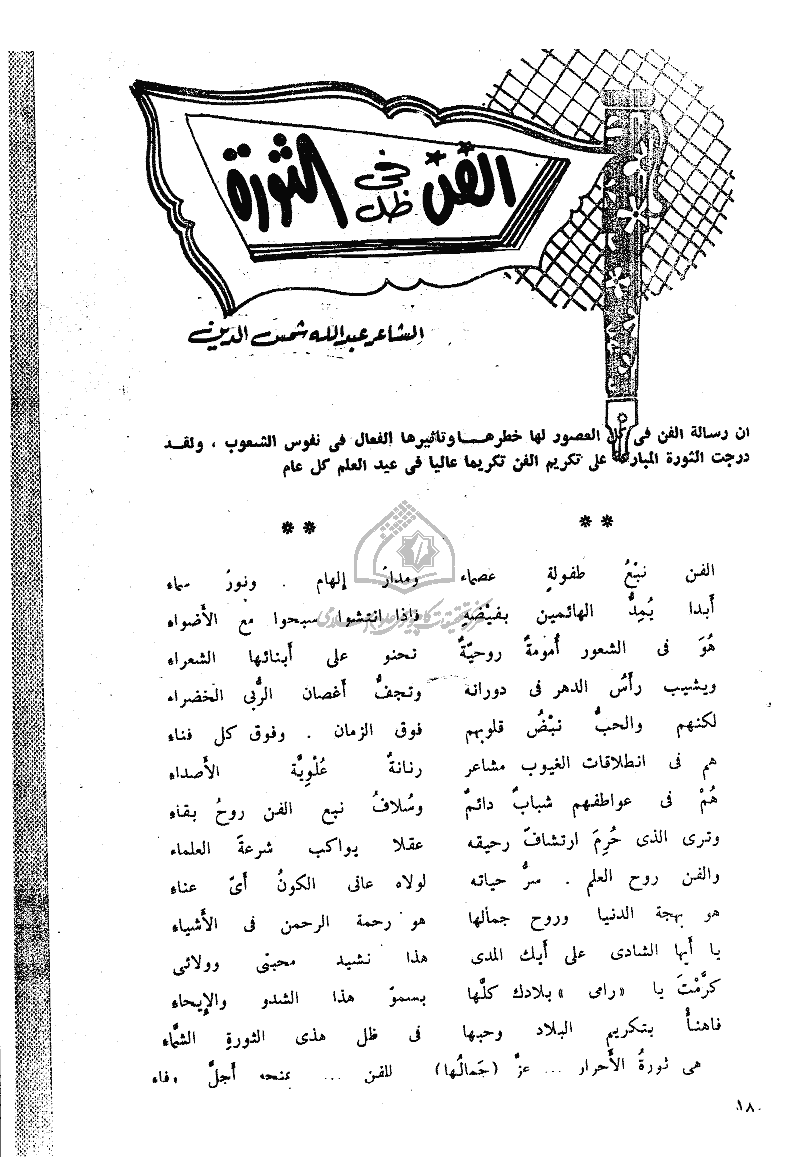 الفن فى ظل الثورة
الشاعر عبدالله شمس الدين
ان رسالة الفن فى كل العصور لها خطرهـا وتاثيرها الفعال فى نفوس الشعوب ، ولقـد
درجت الثورة المباركة على تكريم الفن تكريما عاليا فى عيد العلم كل عام
** **
الفن نبْعُ طفولةٍ عصماء ومدارُ إلهام . ونورُ سماء
أبدا يُمِدُّ الهائمين بفيْضهِ فإذا انتشوا سبحوا مع الأضواء
هُوَ فى الشعور أمومةٌ روحيّةٌ تحنو على أبنائها الشعراء
ويشيب رأسُ الدهر فى دورانه وتجفُّ أغصان الرُّبى الخضراء
لكنهم والحبُّ نبْضُ قلوبهم فوق الزمان . وفوق كل فناء
هم فى انطلاقات الغيوب مشاعر رنانةٌ عُلْوِيَّة الأصداء
هُمْ فى عواطفهم شبابٌ دائمٌ وسُلافُ نبع الفن روحُ بقاء
وترى الذى حُرِمَ ارتشافَ رحيقه عقلا يواكب شرعةَ العلماء
والفن روح العلم . سرُّ حياته لولاه عانى الكونُ أىّ عناء
هو بهجة الدنيا وروح جمالها هو رحمة الرحمن فى الأشياء
يا أيها الشادى على أيك المدى هذا نشيد محبتى وولائى
كرَّمْتَ يا «رامى» بلادك كلَّها بسموّ هذا الشدو والإيحاء
فاهنأْ بتكريم البلاد وحبها فى ظل هذى الثورةِ الشمَّاء
هى ثورةُ الأحرار ... عزَّ (جَمالُها) للفن ... يمنحه أجلَّ وفاء
١٨٠